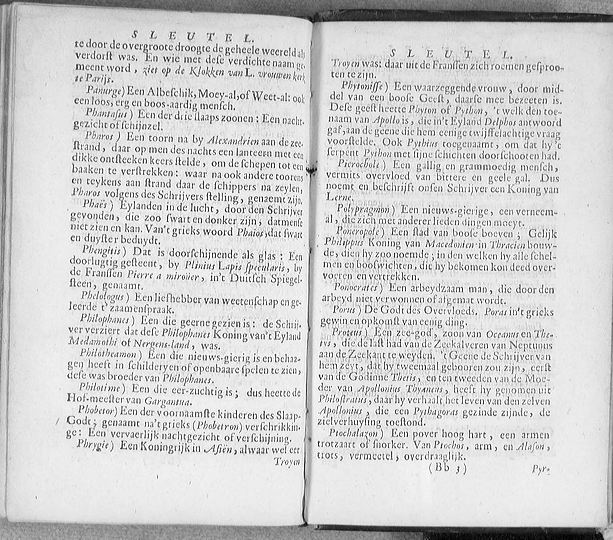 SLEUTEL.
te door de overgroote droogte de geheele weereld als
verdorst was. En wie met dese verdichte naam ge-
meent word, ziet op de Klokken van L. vrouwen kerk
te Parijs.
Panurge) Een Albeschik, Moey-al, of Weet-al: ook
een loos, erg en boos-aardig mensch.
Phantasus) Een der drie slaaps zoonen: Een nacht-
gezicht of schijnzel.
Pharos) Een toorn na by Alexandrien aan de zee-
strand, daar op men des nachts een lanteern met een
dikke ontsteeken keers stelde, om de schepen tot een
baaken te verstrekken: waar na ook andere toorens
en teykens aan strand daar de schippers na zeylen,
Pharos volgens des Schrijvers stelling, genaemt zijn.
Phaës) Eylanden in de lucht, door den Schrijver
gevonden, die zoo swart en donker zijn, datmense
niet zien en kan. Van't grieks woord Phaios, dat swart
en duyster beduydt.
Phengitis) Dat is doorschijnende als glas: Een
doorlugtig gesteent, by Plinius Lapis specularis, by
de Franssen Pierre a miroüer, in't Duitsch Spiegel-
steen, genaamt.
Phelologus) Een liefhebber van weetenschap en ge-
leerde t'zaamenspraak.
Philophanes) Een die geerne gezien is: de Schrij-
ver verziert dat dese Philophanes Koning van't Eyland
Medamothi of Nergens-land, was.
Philotheamon) Een die nieuws-gierig is en behaa-
gen heeft in schilderyen of openbaare spelen te zien,
dese was broeder van Philophanes.
Philotime) Een die eer-zuchtig is; dus heette de
Hof-meester van Gargantua.
Phobetor) Een der voornaamste kinderen des Slaap-
Godt; genaamt na't grieks (Phobetron) verschrikkin-
ge: Een vervaerlijk nachtgezicht of verschijning.
Phrygie) Een Koningrijk in Asiën, alwaar wel eer
Troyen
SLEUTEL.
Troyen was: daar uit de Franssen zich roemen gesproo-
ten te zijn.
Phytonisse) Een waarzeggende vrouw, door mid-
del van een boose Geest, daarse mee bezeeten is.
Dese geest heette Phyton of Python, 't welk den toe-
naam van Apollo is, die in't Eyland Delphos antwoord
gaf, aan de geene die hem eenige twijffelachtige vraag
voorstelde. Ook Pythius toegenaamt, om dat hy 't
serpent Python met sijne schichten doorschooten had.
Picrocholt) Een gallig en grammoedig mensch,
vermits overvloed van bittere en geele gal. Dus
noemt en beschrijft onsen Schrijver een Koning van
Lerne.
Polypragmon) Een nieuws-gierige, een verneem-
al, die zich met anderer lieden dingen moeyt.
Poneropole) Een stad van boose boeven; Gelijk
Philippus Koning van Macedonien in Thracien bouw-
de, dien hy zoo noemde; in den welken hy alle schel-
men en booswichten, die hy bekomen kon deed over-
voeren en vertrekken.
Ponocrates) Een arbeydzaam man, die door den
arbeyd niet verwonnen of afgemat wordt.
Porus) De Godt des Overvloeds. Poras in't grieks
gewin en opkomst van eenig ding.
Proteus) Een zee-god, zoon van Oceanus en The-
tis, die de last had van de Zeekalveren van Neptunus
aan de Zeekant te weyden. 't Geene de Schrijver van
hem zeyt, dat hy tweemaal gebooren zou zijn, eerst
van de Godinne Thetis, en ten tweeden van de Moe-
der van Apollonius Thyaneus, heeft hy genomen uit
Philostratus, daar hy verhaalt het leven van den zelven
Apollonius, die een Pythagoras gezinde zijnde, de
zielverhuysing toestond.
Ptochalazon) Een pover hoog hart, een armen
trotzaart of snorker. Van Ptochos, arm, en Alason,
trots, vermeetel, overdraaglijk.
(Bb 3) Pyr-